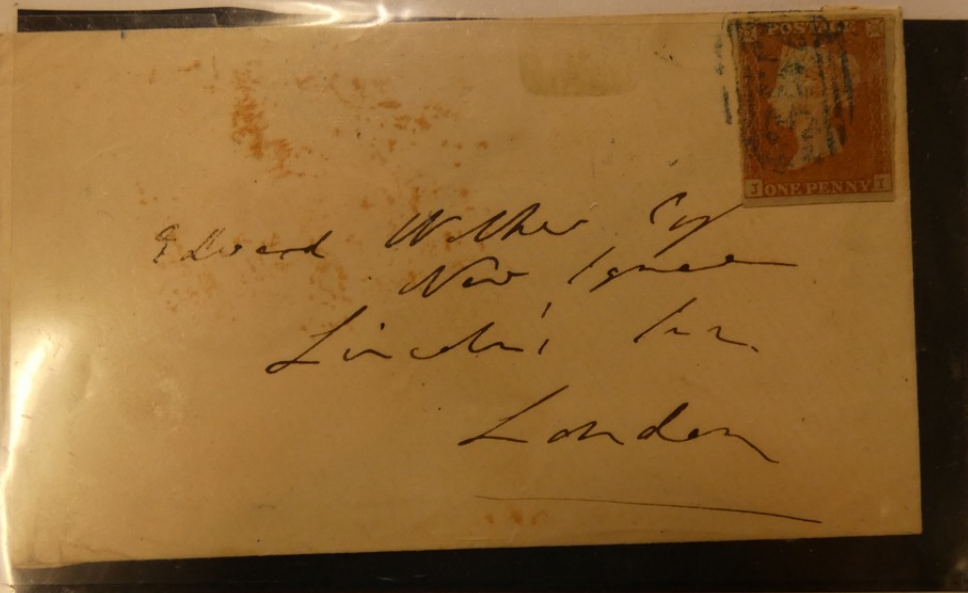 POSTAGE
J ONE PENNY I
Edward Esq
New Square
Lincoln's Inn.
London